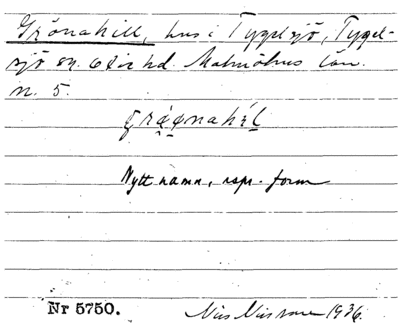 Grönahill, hus i Tygelsjö, Tygel-
sjö sn. Oxie hd. Malmöhus län.
n. 5.
Nytt namn, rspr.-form
Nr 5750.
Nils Nilsson 1936.